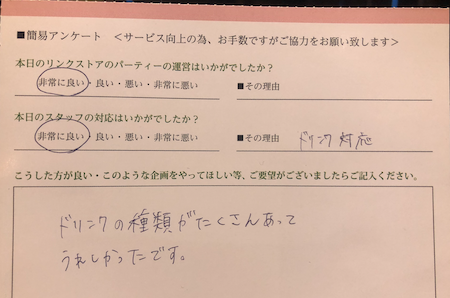 ■簡易アンケート ＜サービス向上の為、お手数ですがご協力をお願い致します＞
本日のリンクストアのパーティーの運営はいかがでしたか？
非常に良い・良い・悪い・非常に悪い ■その理由
本日のスタッフの対応はいかがでしたか？
非常に良い・良い・悪い・非常に悪い ■その理由 ドリンク対応
こうした方が良い・このような企画をやってほしい等、ご要望がございましたらご記入ください。
ドリンクの種類がたくさんあって
うれしかったです。